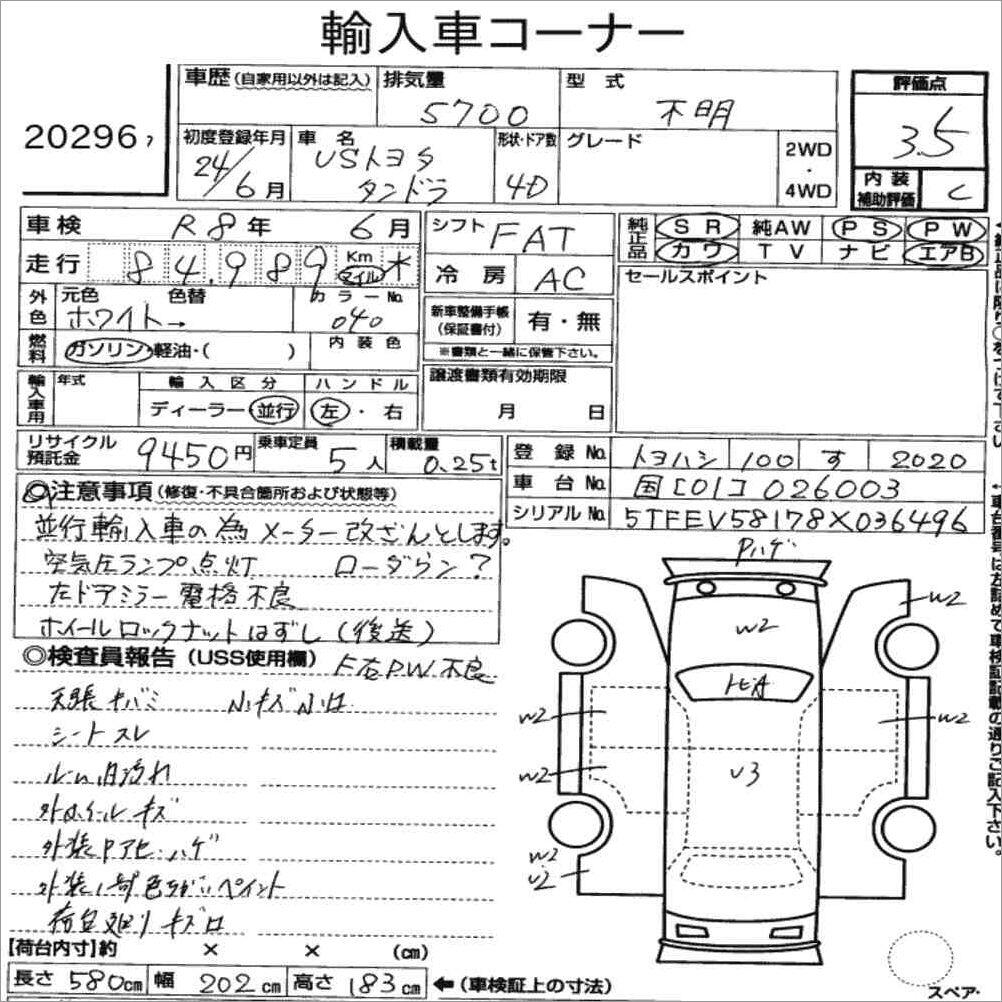 輸入車コーナー
20296 7
車歴 (自家用以外は記入)
排気量
5700
型 式
不明
評価点
3.5
初度登録年月
24/6月
車 名
USトヨタ
タンドラ
形状・ドア数
4D
グレード
2WD
・
4WD
内 装
補助評価
C
車 検 R8年 6月
シフト FAT
純正品 SR 純AW PS PW
カワ TV ナビ エアB
走 行 84,989 Km マイル *
冷 房 AC
セールスポイント
外色 元色 色替 カラーNo.
ホワイト→ 040
新車整備手帳
(保証書付)
有・無
※書類と一緒に保管下さい。
燃料 ガソリン・軽油・( )
内 装 色
輸入車用 年式 輸 入 区 分 ハ ン ド ル
ディーラー・並行 左・右
譲渡書類有効期限
月 日
リサイクル
預託金
9450円
乗車定員
5人
積載量
0.25t
登 録 No. トヨハシ 100 す 2020
車 台 No. 国[01]026003
シリアルNo. 5TFEV58178X036496
◎注意事項 (修復・不具合箇所および状態等)
並行輸入車の為 メーター改ざんとします。
空気圧ランプ点灯 ローダウン?
左ドアミラー電格不良
ホイールロックナットはずし(後送)
◎検査員報告 (USS使用欄) F右PW不良
天張キバミ 小キズ小凹
シートスレ
ルーム内汚れ
外装Pアセ・ハゲ
外装1部色ちがいペイント
荷台廻りキズ凹
【荷台内寸】約 × × (cm)
長さ 580cm 幅 202cm 高さ 183cm ←(車検証上の寸法)
Pハゲ
W2
W2
W2
W2
W2
U3
W2
U2
スペア・